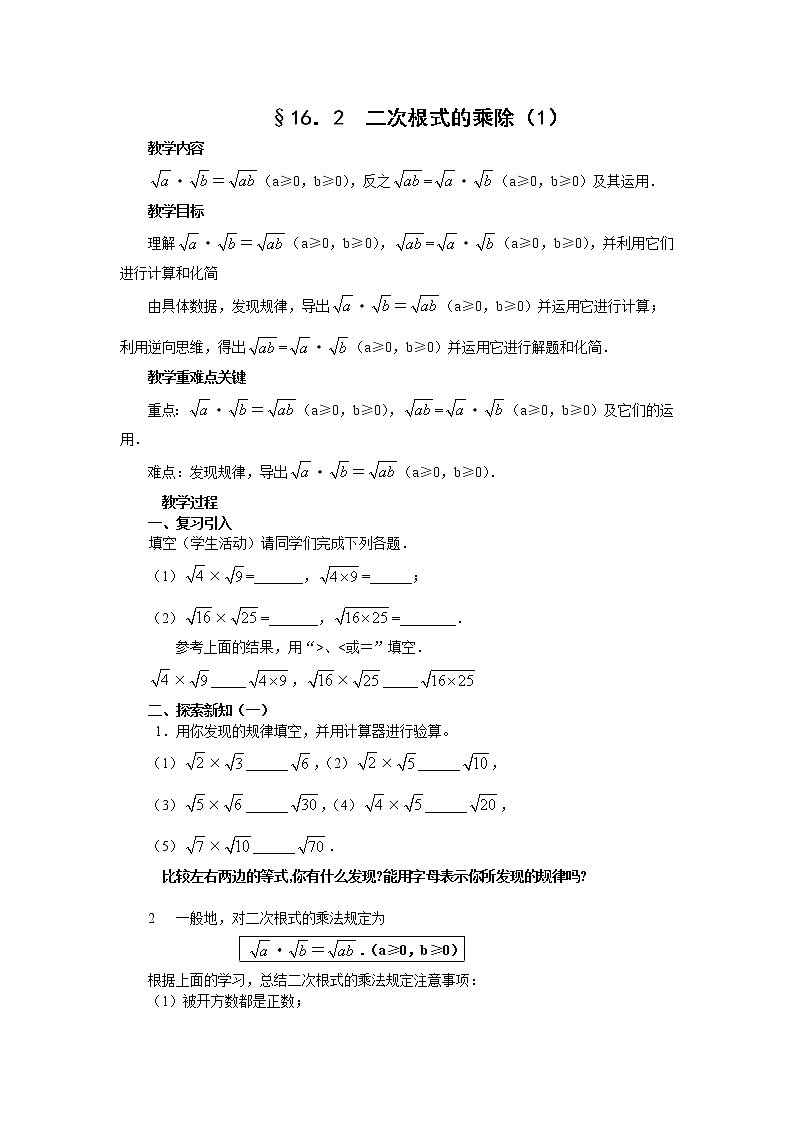 §16．2　二次根式的乘除（1）
教学内容
√a·√b＝√ab（a≥0，b≥0），反之√ab=√a·√b（a≥0，b≥0）及其运用．
教学目标
理解√a·√b＝√ab（a≥0，b≥0），√ab=√a·√b（a≥0，b≥0），并利用它们
进行计算和化简
由具体数据，发现规律，导出√a·√b＝√ab（a≥0，b≥0）并运用它进行计算；
利用逆向思维，得出√ab=√a·√b（a≥0，b≥0）并运用它进行解题和化简．
教学重难点关键
重点：√a·√b＝√ab（a≥0，b≥0），√ab=√a·√b（a≥0，b≥0）及它们的运
用．
难点：发现规律，导出√a·√b＝√ab（a≥0，b≥0）．
教学过程
一、复习引入
填空（学生活动）请同学们完成下列各题．
（1）√4×√9=_______，√4×9=______；
（2）√16×√25=_______，√16×25=________．
参考上面的结果，用“>、<或＝”填空．
√4×√9_____√4×9，√16×√25_____√16×25
二、探索新知（一）
1．用你发现的规律填空，并用计算器进行验算。
（1）√2×√3______√6，（2）√2×√5______√10，
（3）√5×√6______√30，（4）√4×√5______√20，
（5）√7×√10______√70．
比较左右两边的等式,你有什么发现?能用字母表示你所发现的规律吗?
2 一般地，对二次根式的乘法规定为
√a·√b＝√ab．（a≥0，b≥0）
根据上面的学习，总结二次根式的乘法规定注意事项：
（1）被开方数都是正数；